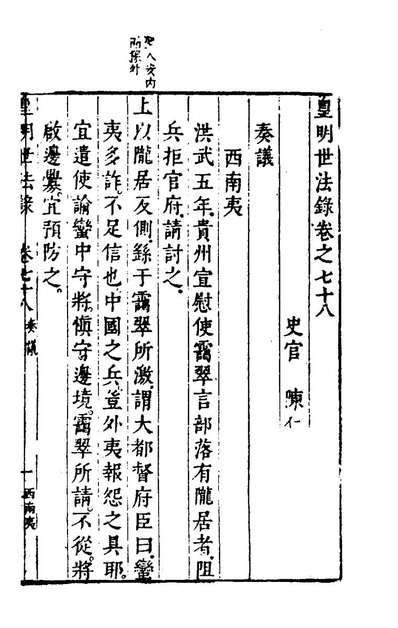 皇明世法錄卷之七十八
史官 陳仁
奏議
西南夷
洪武五年貴州宣慰使靄翠言部落有隴居者阻
兵拒官府請討之
上以隴居反側繇于靄翠所激謂大都督府臣曰蠻
夷多詐不足信也中國之兵豈外夷報怨之具耶
宜遣使諭蠻中守將慎守邊境靄翠所請不從將
啟邊釁宜預防之
皇明世法錄 卷七十八 奏議 一 西南夷
聖人安內
所探外